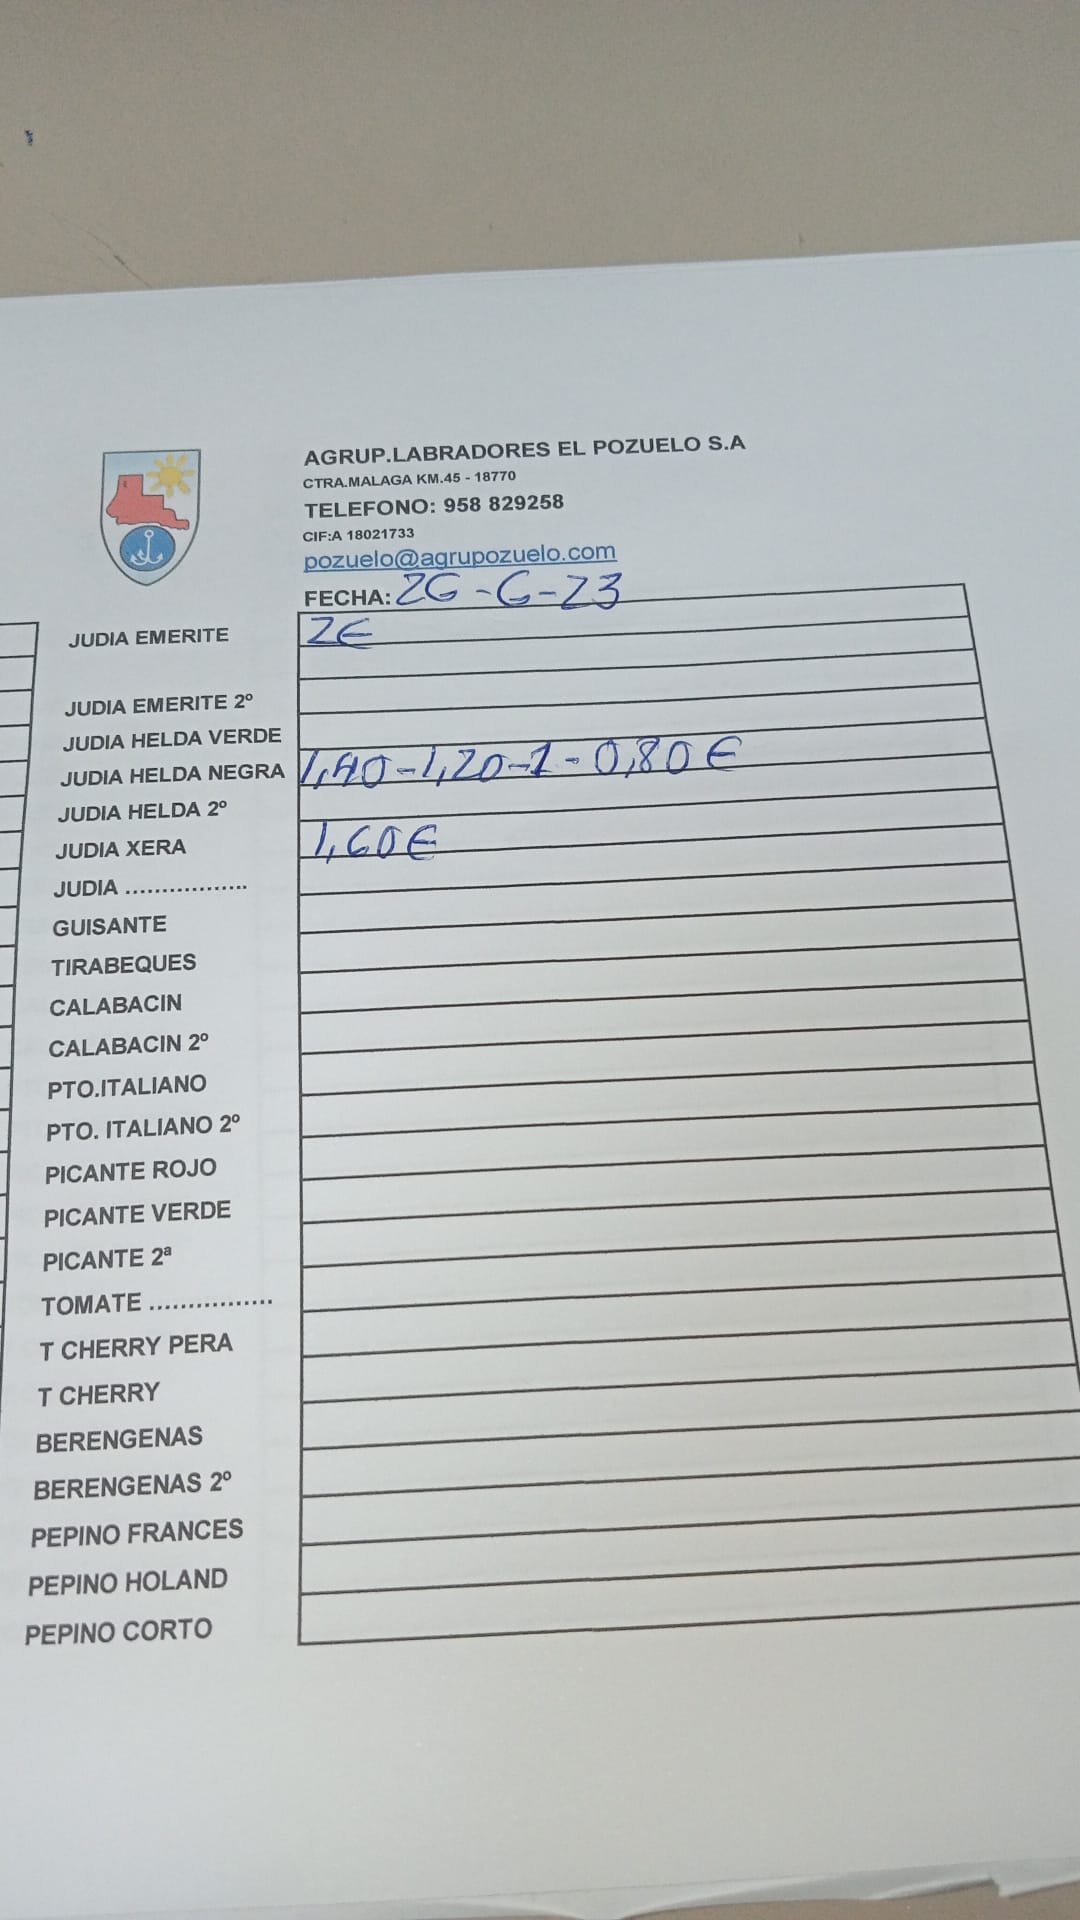 AGRUP.LABRADORES EL POZUELO S.A
CTRA.MALAGA KM.45 - 18770
TELEFONO: 958 829258
CIF:A 18021733
pozuelo@agrupozuelo.com
FECHA: 26-6-23
JUDIA EMERITE 2€
JUDIA EMERITE 2º
JUDIA HELDA VERDE
JUDIA HELDA NEGRA 1,40-1,20-1-0,80€
JUDIA HELDA 2º
JUDIA XERA 1,60€
JUDIA .................
GUISANTE
TIRABEQUES
CALABACIN
CALABACIN 2º
PTO.ITALIANO
PTO. ITALIANO 2º
PICANTE ROJO
PICANTE VERDE
PICANTE 2ª
TOMATE ................
T CHERRY PERA
T CHERRY
BERENGENAS
BERENGENAS 2º
PEPINO FRANCES
PEPINO HOLAND
PEPINO CORTO